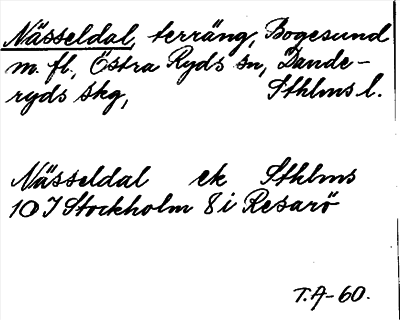 Nässeldal, terräng, Bogesund
m. fl., Östra Ryds sn, Dande-
ryds skg, Sthlms l.
Nässeldal ek Sthlms
10 I Stockholm 8 i Resarö
T.A-60.